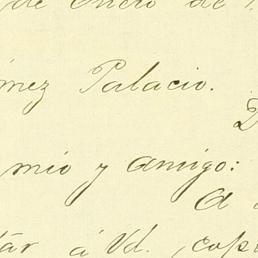 de Enero de
mez Palacio.
D
mio y amigo:
A
tar á Vd. copi